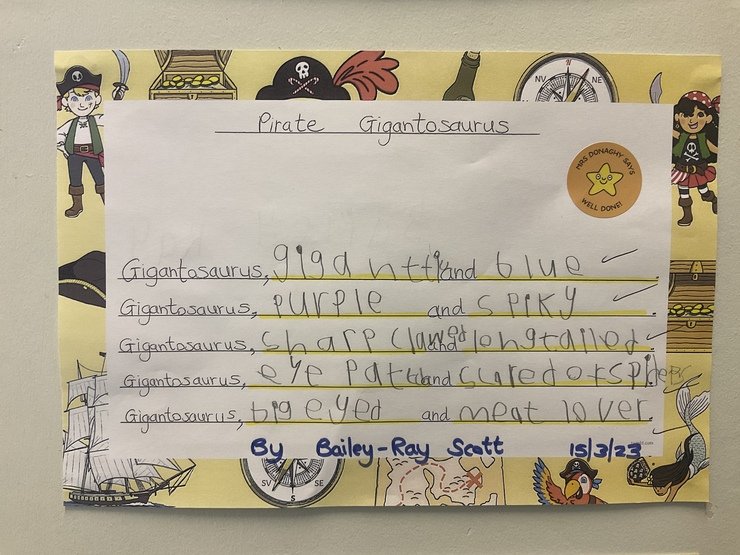 NV
NE
Pirate Gigantosaurus
MRS DONAGHY SAYS
WELL DONE!
Gigantosaurus, gigantic and blue.
Gigantosaurus, purple and spiky.
Gigantosaurus, sharp clawed and longtailed.
Gigantosaurus, eye patch and scared of spider
Gigantosaurus, big eyed and meat lover.
By Bailey-Ray Scott 15/3/23
SV
S
SE